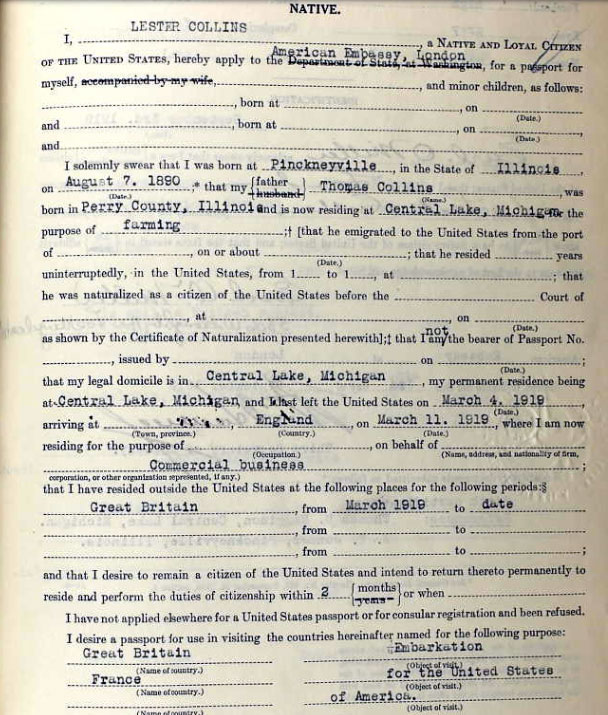 NATIVE.
LESTER COLLINS
I, , a NATIVE AND LOYAL CITIZEN
American Embassy, London
OF THE UNITED STATES, hereby apply to the Department of State, at Washington, for a passport for
myself, accompanied by my wife, , and minor children, as follows:
, born at , on
(Date.)
and , born at , on
(Date.)
and
I solemnly swear that I was born at Pinckneyville, in the State of Illinois,
on August 7. 1890 ;* that my {father husband} Thomas Collins , was
(Date.) (Name.)
born in Perry County, Illinois and is now residing at Central Lake, Michigan for the
purpose of farming ;† [that he emigrated to the United States from the port
of , on or about ; that he resided years
(Date.)
uninterruptedly, in the United States, from 1 to 1 , at ; that
he was naturalized as a citizen of the United States before the Court of
, at , on
(Date.)
not
as shown by the Certificate of Naturalization presented herewith];‡ that I am the bearer of Passport No.
, issued by on ;
(Date.)
that my legal domicile is in Central Lake, Michigan , my permanent residence being
at Central Lake, Michigan, and I last left the United States on March 4. 1919
(Date.)
arriving at England , on March 11. 1919, where I am now
(Town, province.) (Country.) (Date.)
residing for the purpose of , on behalf of
(Occupation.) (Name, address, and nationality of firm,
Commercial business ;
corporation, or other organization represented, if any.)
that I have resided outside the United States at the following places for the following periods:§
Great Britain , from March 1919 to date
, from to
, from to ;
and that I desire to remain a citizen of the United States and intend to return thereto permanently to
reside and perform the duties of citizenship within 2 {months years} or when
I have not applied elsewhere for a United States passport or for consular registration and been refused.
I desire a passport for use in visiting the countries hereinafter named for the following purpose:
Great Britain Embarkation
(Name of country.) (Object of visit.)
France for the United States
(Name of country.) (Object of visit.)
of America.
(Name of country.) (Object of visit.)